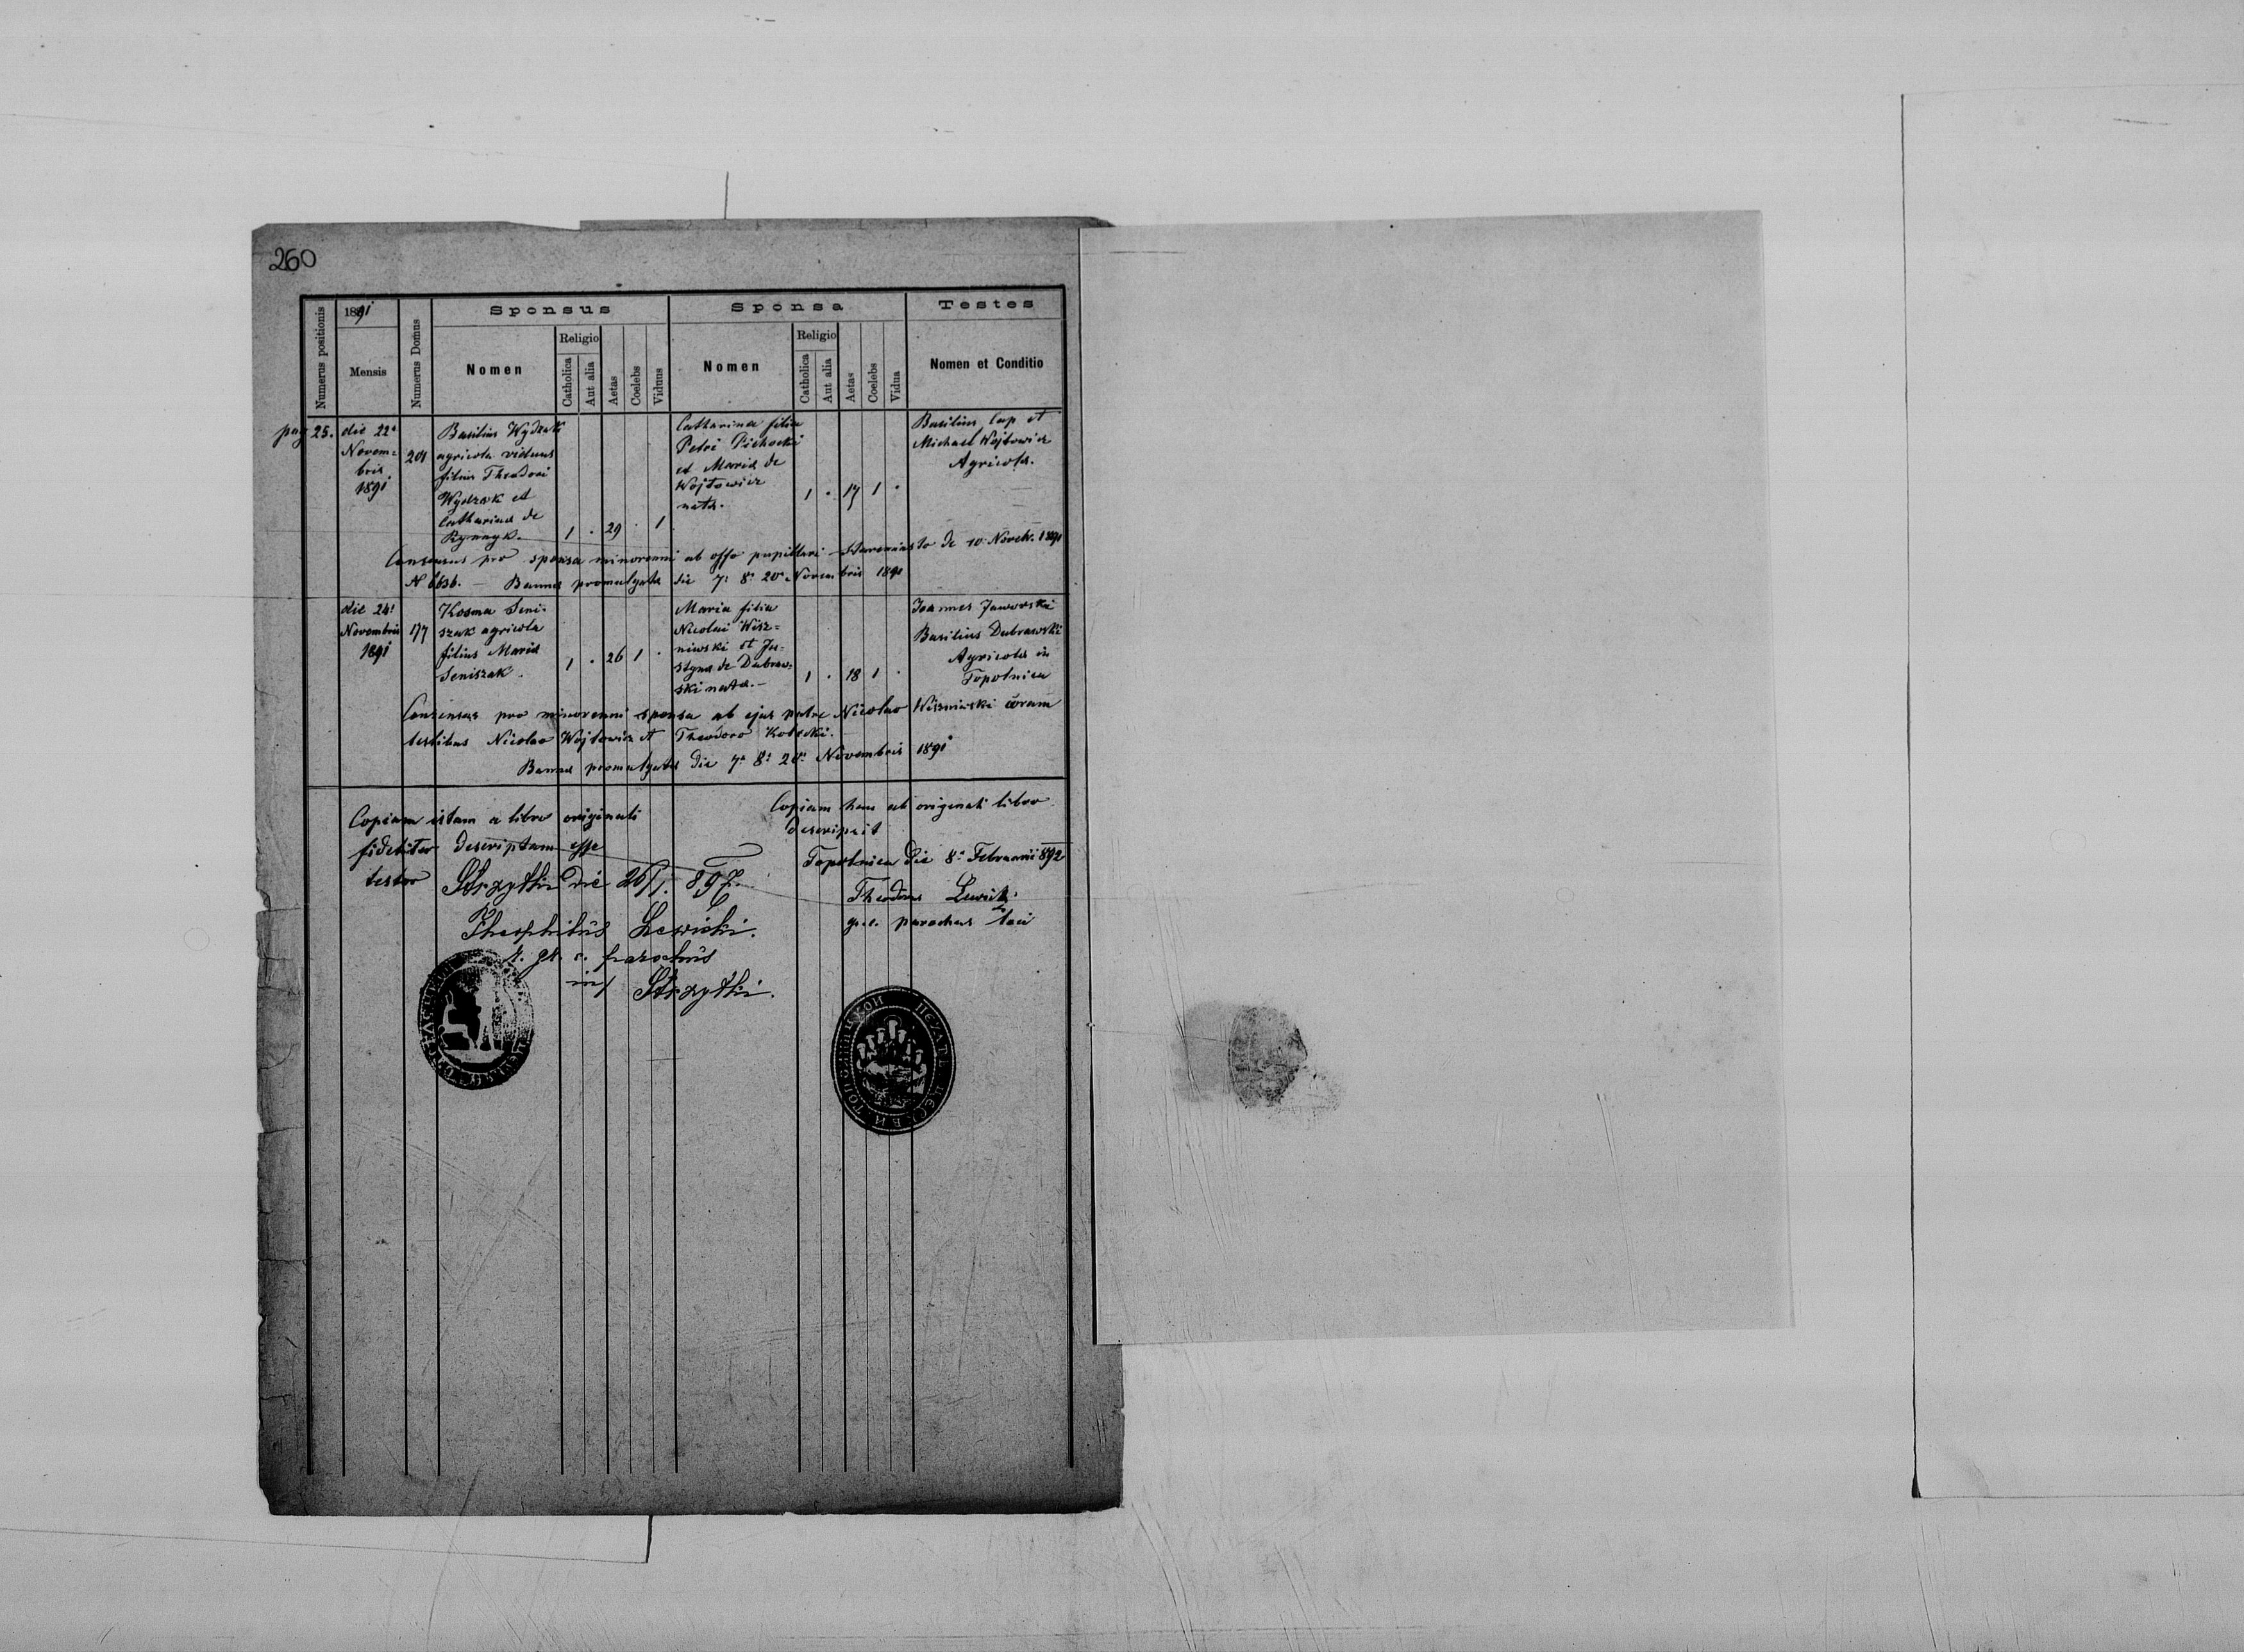 260
Numerus positionis
1891
Mensis
Numerus Domus
Sponsus
Nomen
Religio
Catholica
Aut alia
Aetas
Coelebs
Viduus
Sponsa
Nomen
Religio
Catholica
Aut alia
Aetas
Coelebs
Vidua
Testes
Nomen et Conditio
pag 25.
die 22a
Novem=
bris
1891
201
Basilius Wydrak
agricola viduus
filius Theodori
Wydrak et
Catharina de
1 . 29 . 1
Catharina filia
Petri
et Maria de
Wojtowicz
nata.
1 . 17 1 .
Basilius Cap et
Michael Wojtowicz
Agricola.
Consensus pro sponsa minorenni ab offo pupillari de 10 Noveb. 1891
N 6636. — Banna promulgata die 7a 8a 20a Novembris 1891
die 24a
Novembris
1891
177
Kosma Seni-
szak agricola
filius Maria
Seniszak.
1 . 26 1 .
Maria filia
Nicolai Wisz=
niwski et Ju-
styna de Dubraw-
ski nata.-
1 . 18 1 .
Joannes Jaworski
Basilius Dubrawski
Agricola in
Topolnica
Consensus pro minorenni sponsa ab ejus patre Nicolao Wiszniwski coram
testibus Nicolao Wojtowicz et Theodoro
Banna promulgata die 7a 8a 20a Novembris 1891
Copiam istam a libro originali
fideliter descriptam esse
testor
Strzyłki die 26/1. 897.
Theophilus Lewicki.
gr. c. parochus
in Strzyłki.
Copiam hanc ab originali libro
descripsit
Topolnica die 8a Februarii 892
Theodorus Lewicki
gr.c. parochus loci
ПЕЧАТЬ ЦЕРКВИ ТОПОЛНИЦКОИ